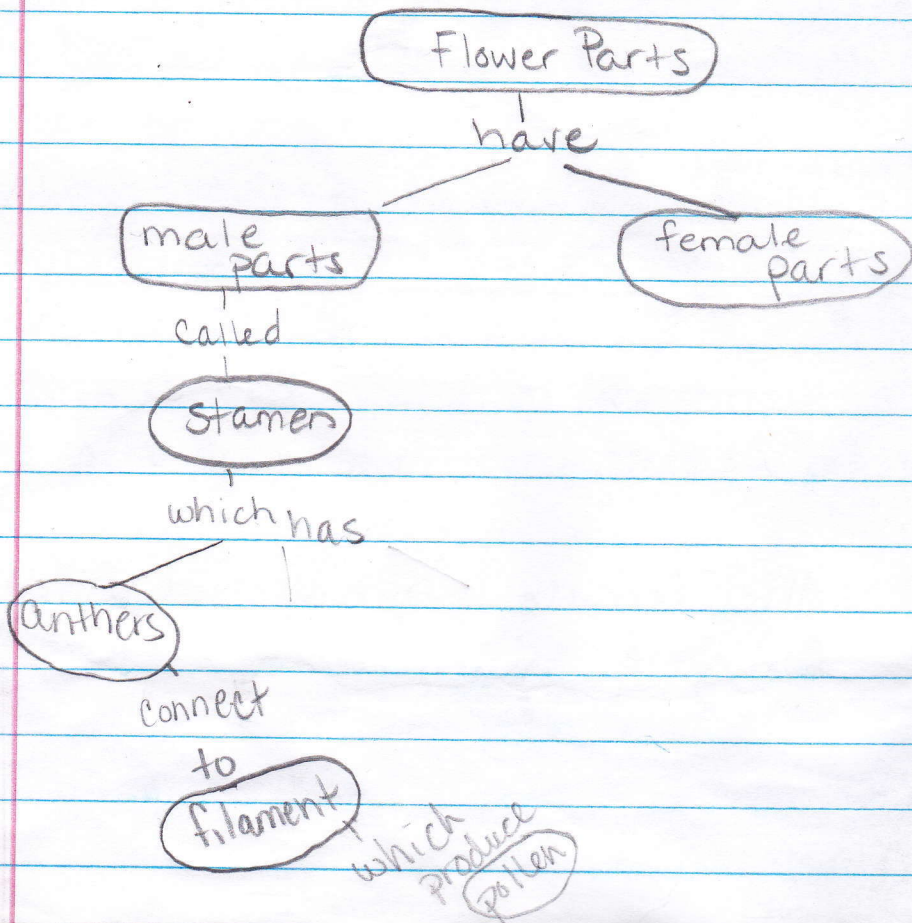 Flower Parts
have
male
parts
female
parts
called
stamen
which has
anthers
connect
to
filament
which
produce
pollen